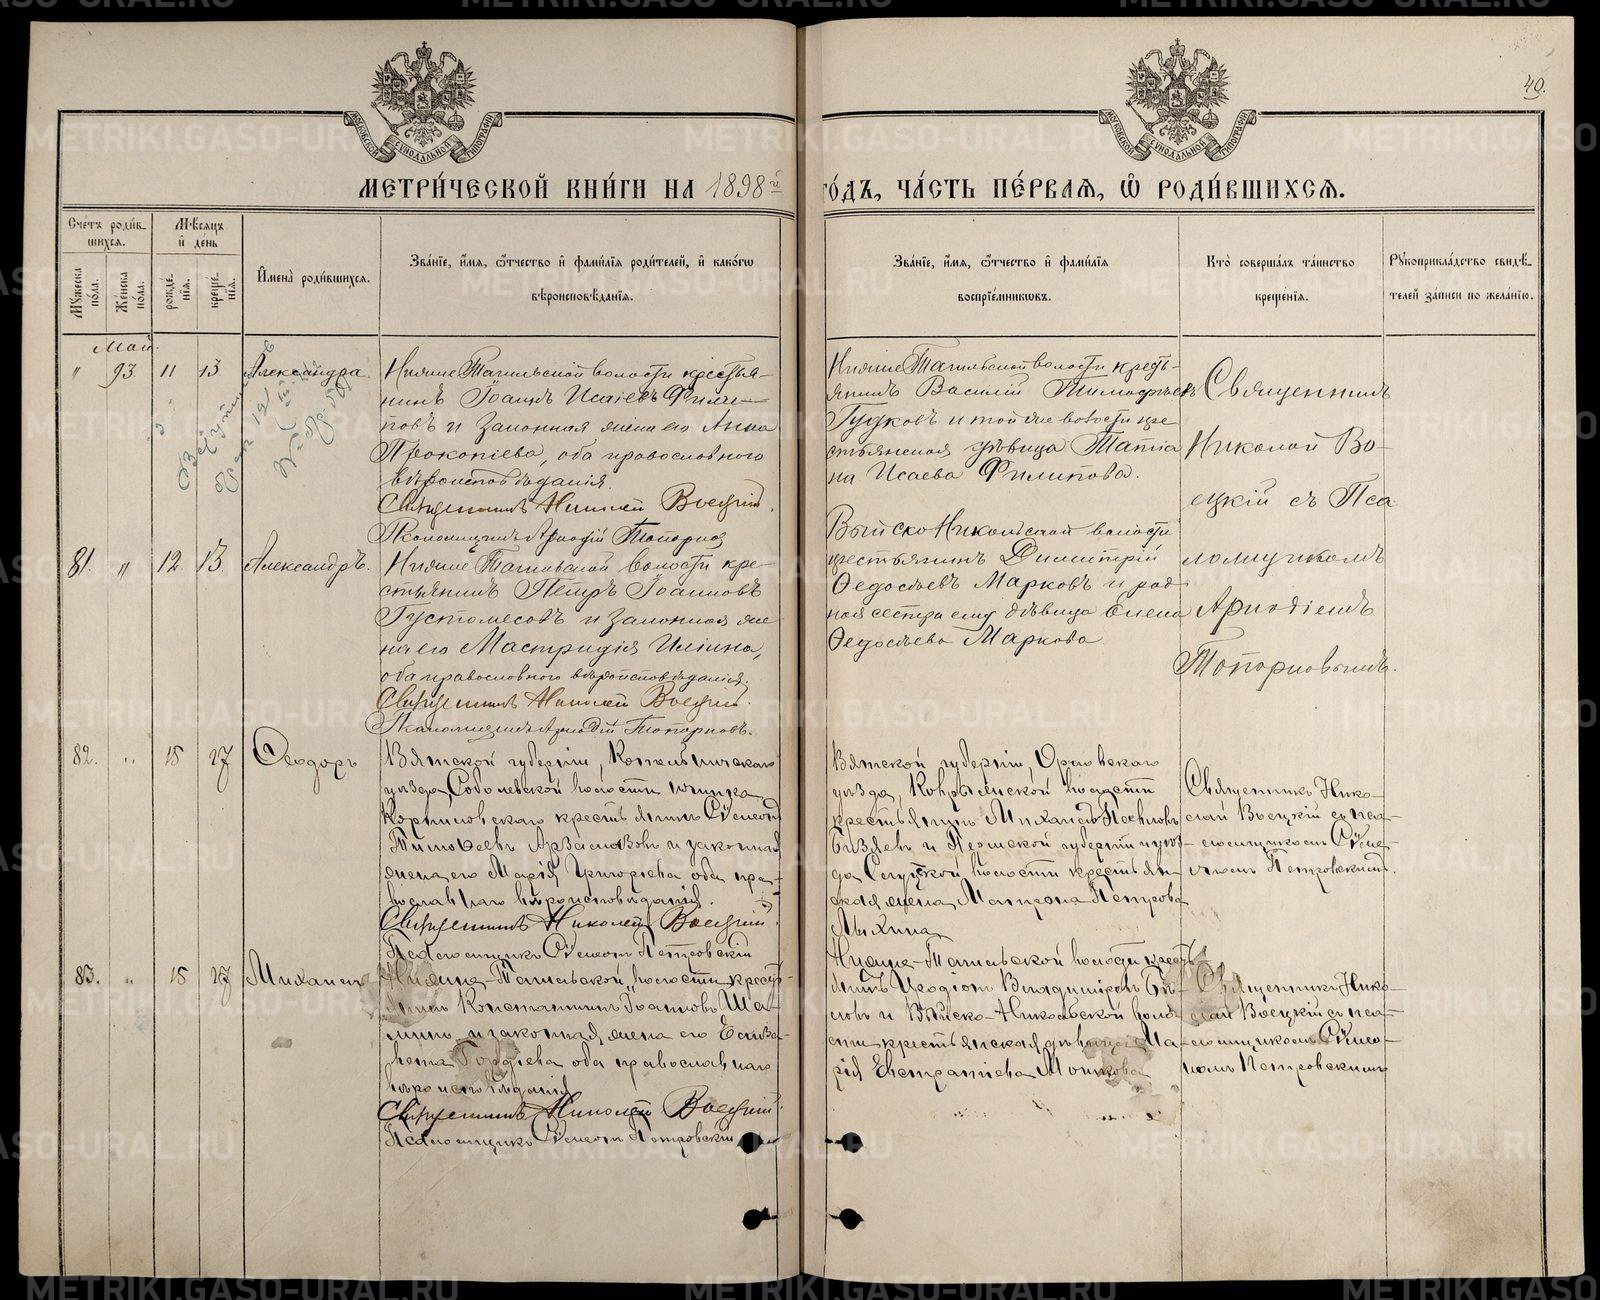 40.
МЕТРИ́ЧЕСКОЙ КНИ́ГИ НА 1898й
ГО́ДЪ, ЧА́СТЬ ПЕ́РВАѦ, Ѡ РОДИ́ВШИХСѦ.
Сче́тъ роди́в-
шихсѧ.
Мѣ́сѧцъ
и҆ день
Му́жеска
по́ла.
Же́нска
по́ла.
рожде́-
нїѧ.
креще́-
нїѧ.
И҆мена̀ роди́вшихсѧ.
Зва́нїе, и҆́мѧ, ѻ҆́тчество и҆ фами́лїѧ роди́телей, и҆ како́гѡ
вѣроисповѣ́данїѧ.
Зва́нїе, и҆́мѧ, ѻ҆́тчество и҆ фами́лїѧ
воспрїе́мниковъ.
Кто̀ соверша́лъ та́инство
креще́нїѧ.
Рꙋкоприкла́дство свидѣ́-
телей за́писи по жела́нїю.
Май.
" 93. 11 13 Александра
Нижне Тагильской волости крестья-
нинъ Іоаннъ Исаіевъ Филип-
повъ и законная жена его Анна
Прокопіева, оба православного
вѣроисповѣданія.
Священникъ Николай Воецкій.
Псаломщикъ Аркадій Топорков
Нижне Тагильской волости кресть-
янинъ Василій Тимофѣевъ
Гудковъ и той же волости кре-
стьянская дѣвица Татіа
на Исаева Филипова.
Священникъ
Николай Во-
ецкій съ Пса
ломщикомъ
Аркадіемъ
Топорковымъ.
81. " 12. 13 Александръ.
Нижне Тагильской волости кре-
стьянинъ Петръ Іоанновъ
Густомесовъ и законная же
на его Мастридія Иліина,
оба православного вѣроисповѣданія.
Священникъ Николай Воецкій.
Псаломщикъ Аркадій Топорковъ.
Выйско Никольской волости
крестьянинъ Димитрій
Ѳедосѣевъ Марковъ и род
ная сестра ему дѣвица Елена
Ѳедосѣева Маркова
82. " 15 27 Ѳеодоръ
Вятской губерніи, Котельническаго
уѣзда, Соболевской волости починка
Корниловскаго крестьянинъ Сѵмеонъ
Тимоѳеевъ Арзамазовъ и законная
жена его Марія Григоріева оба пра-
вославнаго вѣроисповѣданія.
Священникъ Николай Воецкій.
Псаломщикъ Сѵмеонъ Петровскій
Вятской губерніи, Орловскаго
уѣзда, волости
крестьянинъ Михаилъ
и Пермской губерніи
да волости крестьян
ская жена Матрона Петрова
Священникъ Нико-
лай Воецкій съ пса-
ломщикомъ Сѵме-
ономъ Петровскимъ.
83. " 15 27 Михаилъ
Нижне-Тагильской волости кресть-
янинъ Константинъ Іоанновъ Ша-
и законная жена его Елиза-
вета Гордіева оба православнаго
вѣроисповѣданія
Священникъ Николай Воецкій.
Псаломщикъ Сѵмеонъ Петровскій
Нижне-Тагильской волости кресть-
янинъ Иродіонъ Владиміровъ Бѣ-
ловъ и Выйско-Никольской воло-
сти крестьянская дѣвица Ма-
рія Евстратіева
Священникъ Нико-
лай Воецкій съ пса-
ломщикомъ Сѵмео-
номъ Петровскимъ